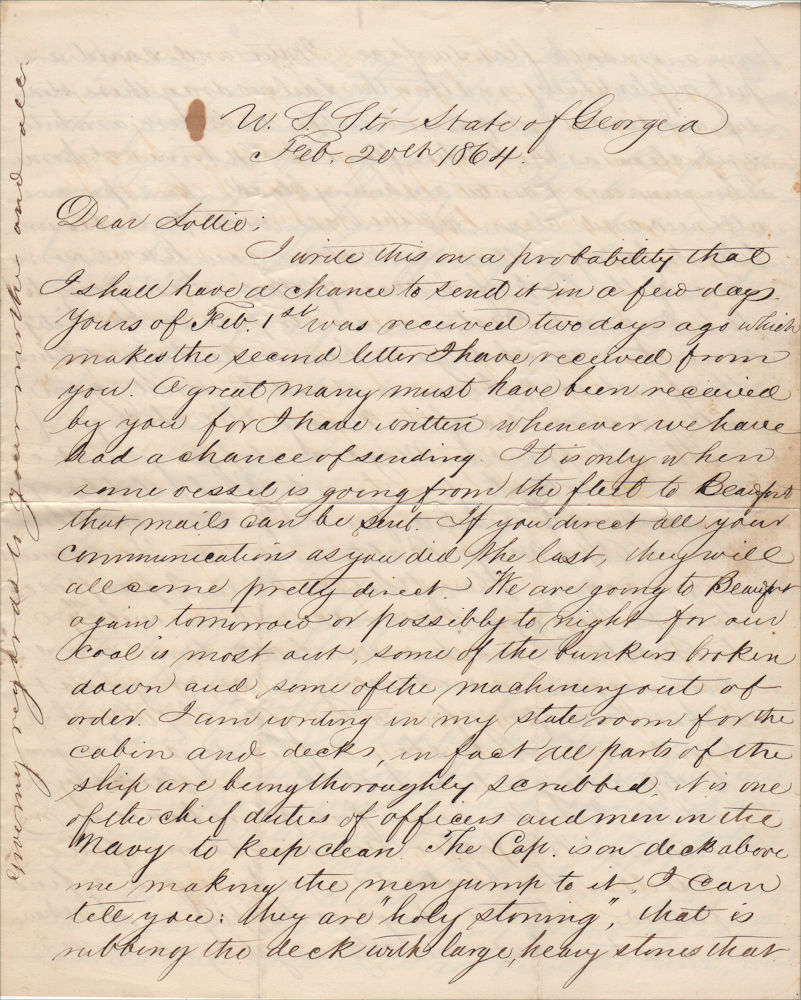 U. S. Str State of Georgia
Feb. 20th 1864.
Dear Lottie;
I write this on a probability that
I shall have a chance to send it in a few days.
Yours of Feb. 1st was received two days ago which
makes the second letter I have received from
you. A great many must have been received
by you for I have written whenever we have
had a chance of sending. It is only when
some vessel is going from the fleet to Beaufort
that mails can be sent. If you direct all your
communications as you did the last, they will
all come pretty direct. We are going to Beaufort
again tomorrow or possibly to night for our
coal is most out, some of the bunkers broken
down and some of the machinery out of
order. I am writing in my state room for the
cabin and decks, in fact all parts of the
ship are being thoroughly scrubbed. It is one
of the chief duties of officers and men in the
Navy to keep clean. The Cap. is on deck above
me making the men jump to it, I can
tell you; they are "holy stoning", that is
rubbing the deck with large, heavy stones that
Give my regards to your mother and all.